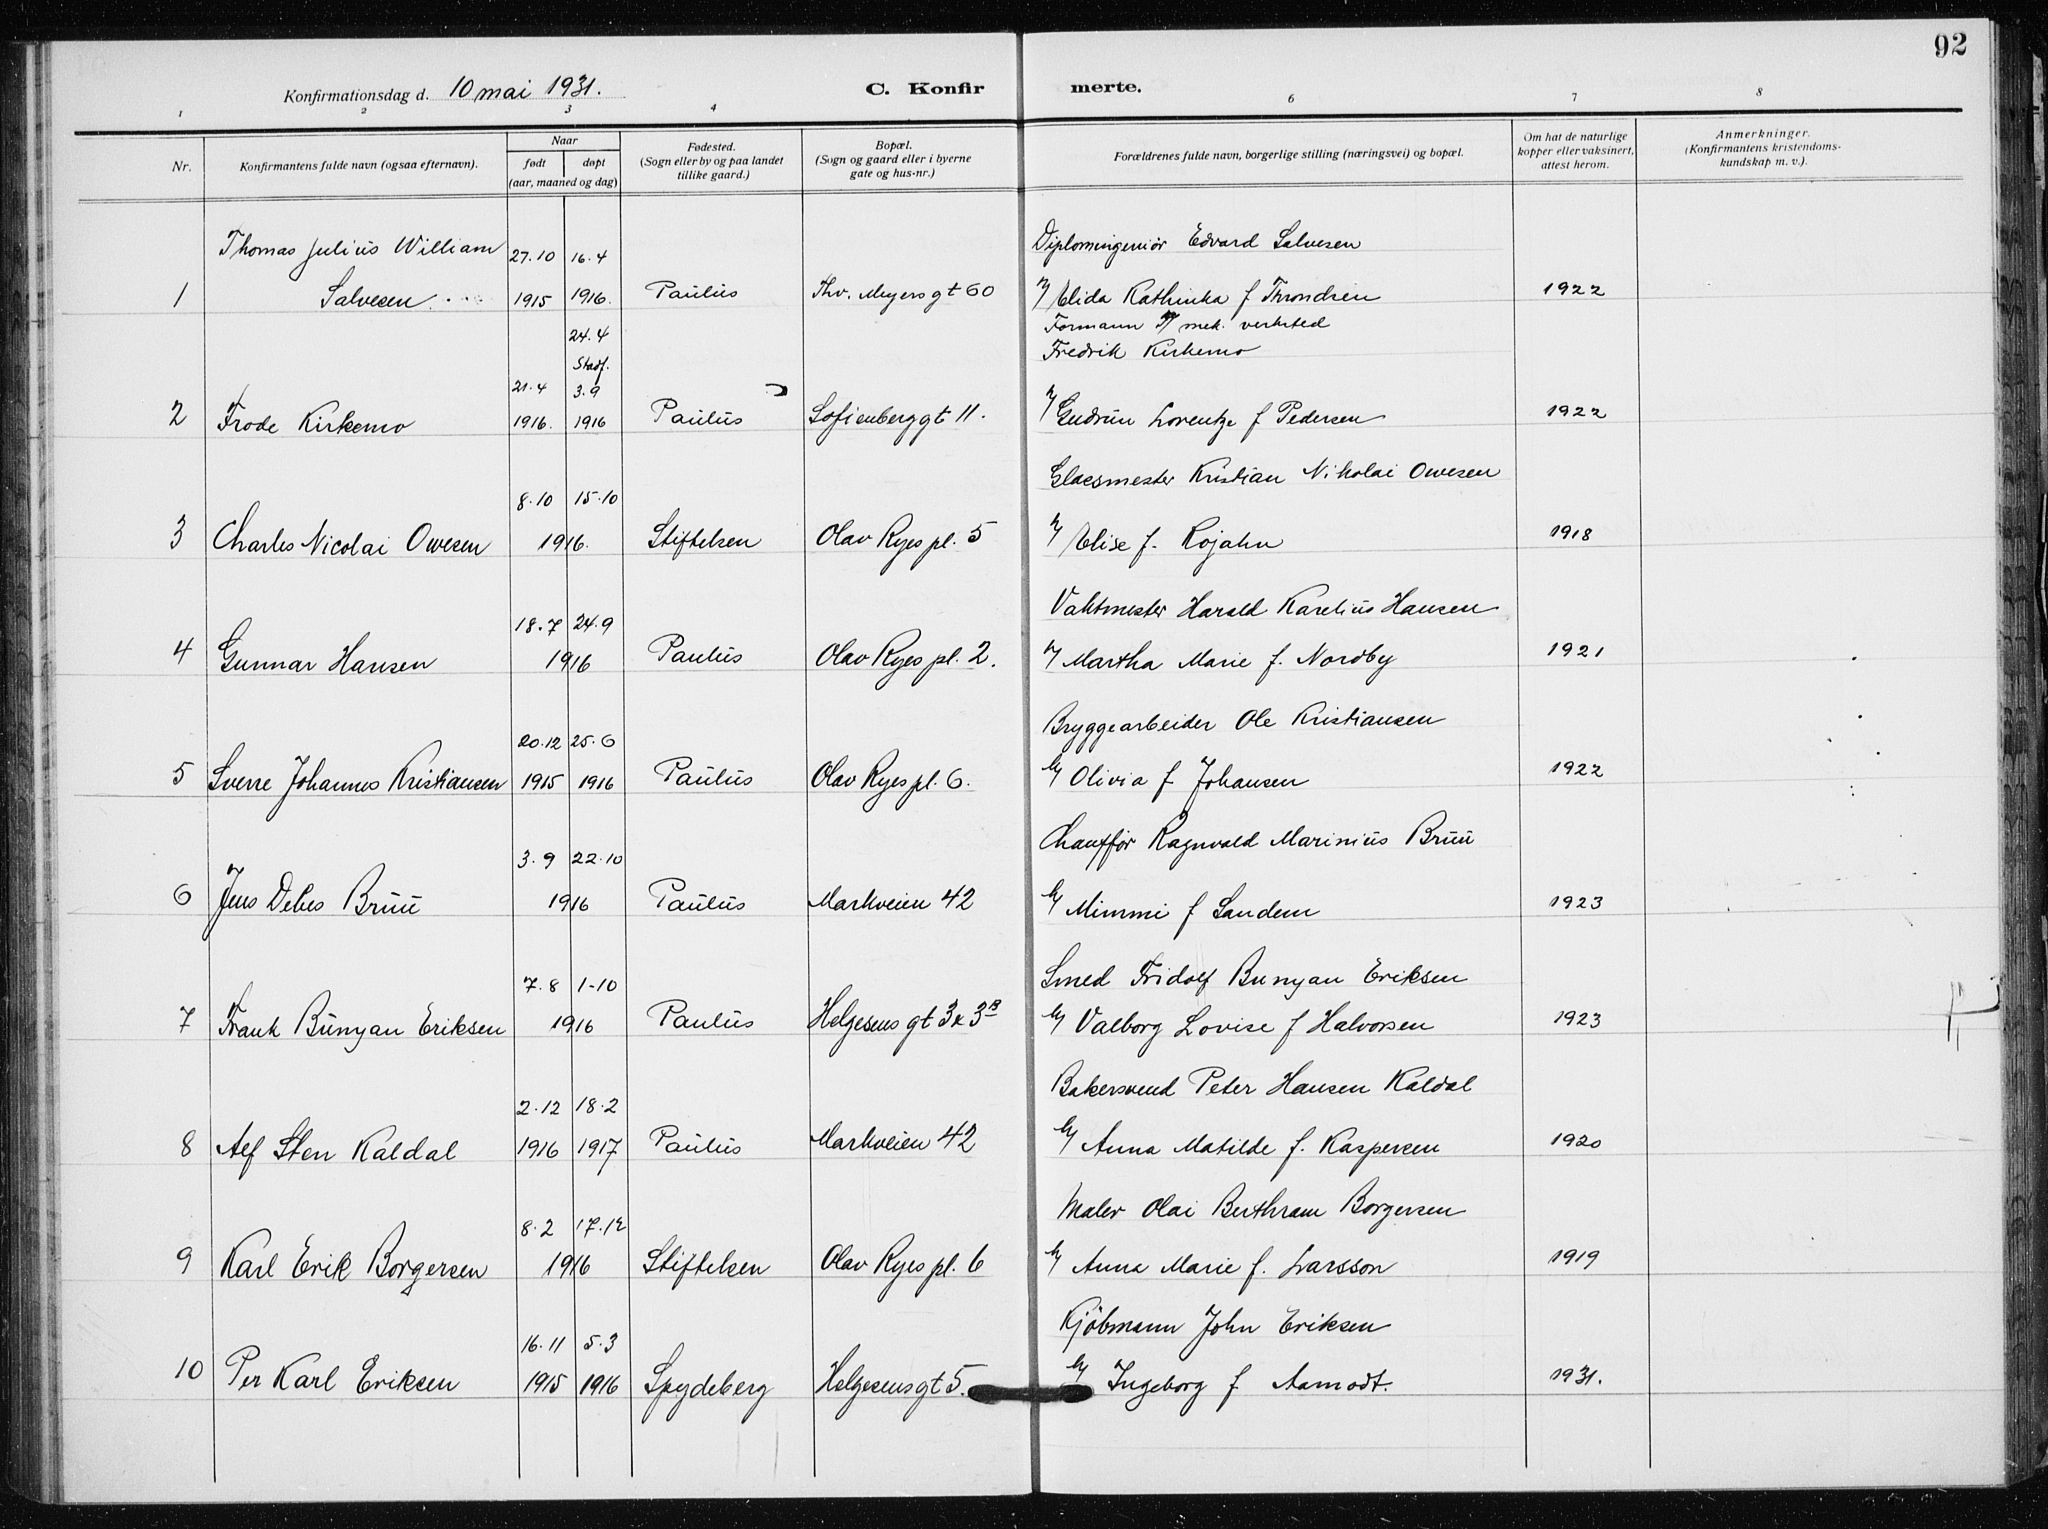 92
Konfirmationsdag d. 10 mai 1931.
C. Konfir merte.
1 2 3 4 6 7 8
Nr.
Konfirmantens fulde navn (ogsaa efternavn).
Naar
født døpt
(aar, maaned og dag)
Fødested.
(Sogn eller by og paa landet
tillike gaard.)
Bopæl.
(Sogn og gaard eller i byerne
gate og hus-nr.)
Forældrenes fulde navn, borgerlige stilling (næringsvei) og bopæl.
Om hat de naturlige
kopper eller vaksinert,
attest herom.
Anmerkninger.
(Konfirmantens kristendoms-
kundskap m. v.).
Thomas Julius William 27.10 16.4 Diplomingeniør Edvard Salvesen
1 Salvesen 1915 1916. Paulus Thv. Meyersgt 60 Elida Kathinka f Throndsen 1922
24.4 Formann mek. verksted
Stadf. Fredrik Kirkemo
21.4 3.9
2 Frode Kirkemo 1916. 1916 Paulus Sofienberggt 11. Gudrun Lorentze f Pedersen 1922
8.10 15.10 Glassmester Kristian Nikolai Owesen
3 Charles Nicolai Owesen 1916. Stiftelsen Olav Ryes pl. 5 Elise f. Rojahn 1918
18.7 24.9 Vaktmester Harald Karelius Hansen
4 Gunnar Hansen 1916 Paulus Olav Ryes pl. 2. Martha Marie f. Nordby 1921
20.12 25.6 Bryggearbeider Ole Kristiansen
5 Sverre Johannes Kristiansen 1915 1916 Paulus Olav Ryes pl. 6. Olivia f Johansen 1922
3.9 22.10 Chauffør Ragnvald Marinius Bruu
6 Jens Debes Bruu 1916 Paulus Markveien 42 Mimmi f Sandem 1923
7.8 1-10 Smed Fridolf Bunyan Eriksen
7 Frank Bunyan Eriksen 1916 Paulus Helgesens gt 3 x 3B Valborg Lovise f Halvorsen 1923
2.12 18.2 Bakersvend Peter Hansen Kaldal
8 Alf Sten Kaldal 1916 1917 Paulus Markveien 42 Anna Matilde f. Kaspersen 1920
8.2 17.12 Maler Olai Berthram Borgersen
9 Karl Erik Borgersen 1916 Stiftelsen Olav Ryes pl. 6 Anna Marie f. Larsson 1919
16.11 5.3 Kjöbmann John Eriksen
10 Per Karl Eriksen 1915 1916 Spydeberg Helgesensgt 5. Ingeborg f Aamodt. 1931.